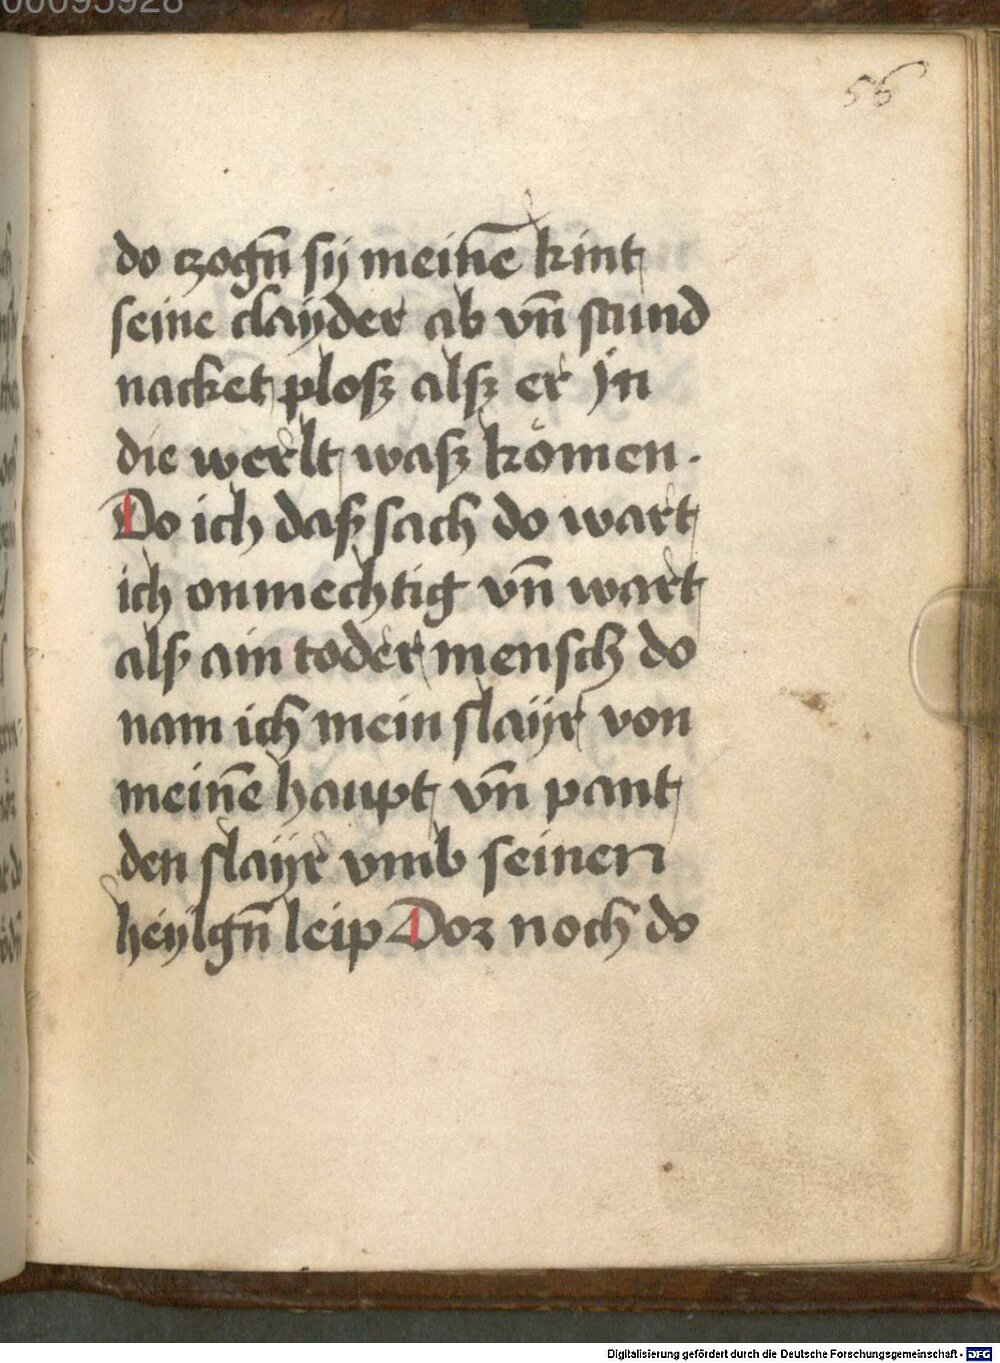 56
do czogn̄ sy meinē kint
seine clayder ab vn̄ stund
nacket plosz alsz er Jn
die werlt wasz kömen.
Do ich dasz sach do wart
ich onmechtig vn̄ wart
alsz ain toder mensch do
nam ich mein slayr von
meinē haupt vn̄ pant
den slayr vmb seinen
heylgn̄ leip Dor noch do
Digitalisierung gefördert durch die Deutsche Forschungsgemeinschaft - DFG